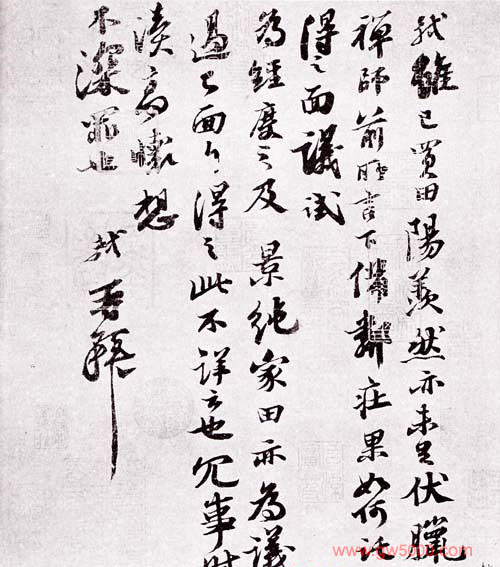 軾雖已買田陽羨然亦未足伏臘
禪師前所言下備鄰庄果如何託
得之面議試
為經度之及 景純家田亦為議
過已面白得之此不詳云也冗事時
瀆高懷想
不深罪也
軾再拜